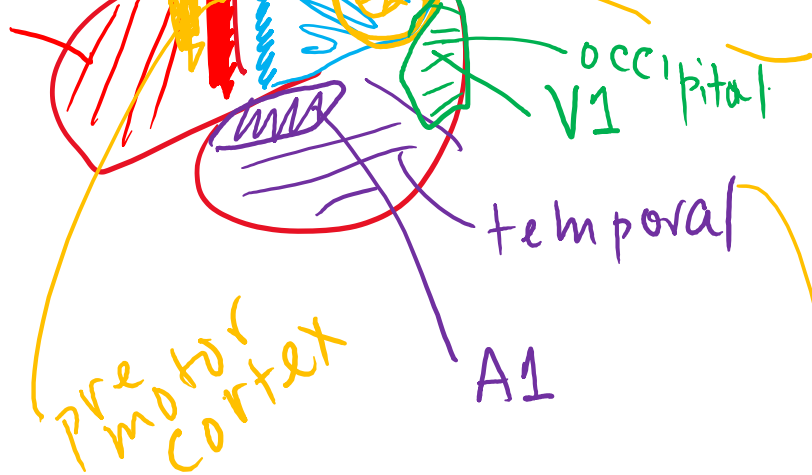 occipital
V1
temporal
A1
pre
motor
cortex